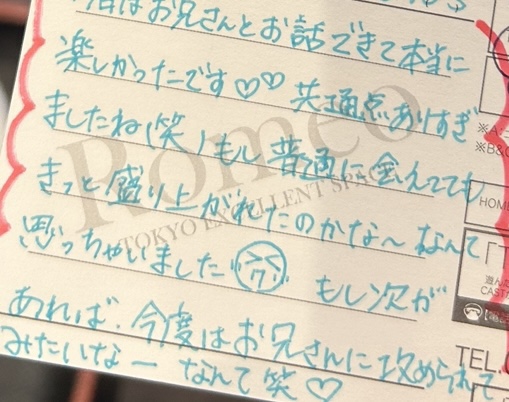 はお兄さんとお話できて本当に
楽しかったです♡♡ 共通点ありすぎ
ましたね(笑)もし普通に会えてても
きっと盛り上がれたのかな〜なんて
思っちゃいました もし次が
あれば、今度はお兄さんに攻められて
みたいなー なんて笑♡
Romeo
TOKYO EXCELLENT SPA
※A:
※B&
HOME
「T
遊ん
CAST
TEL.